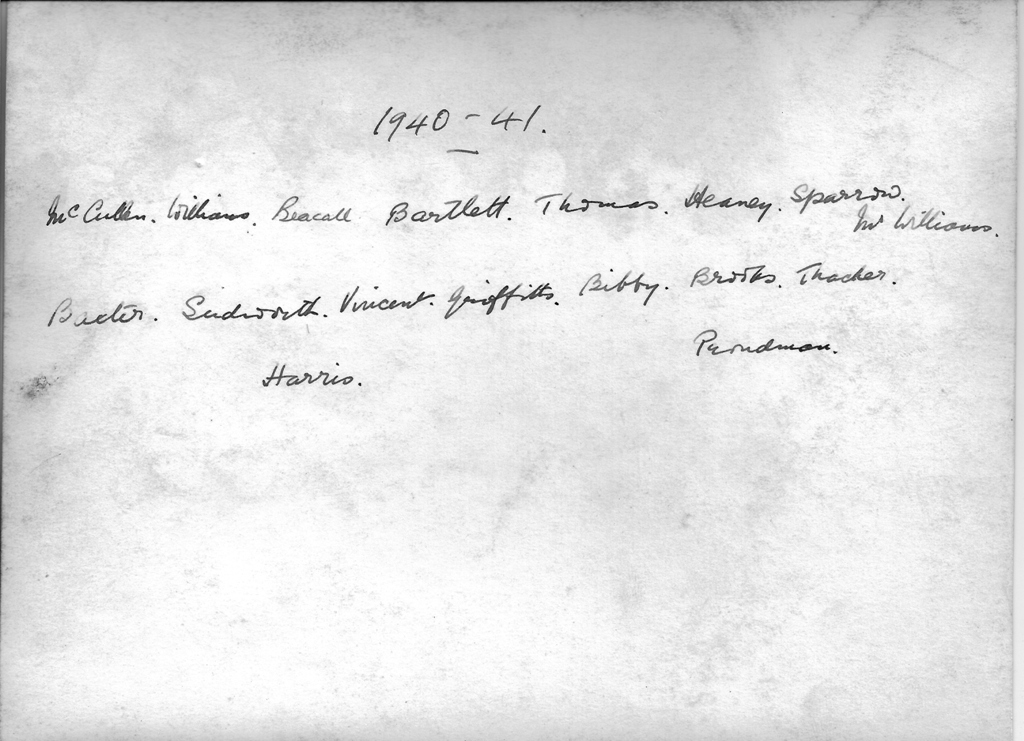 1940 - 41.
McCullen. Williams. Beacall Bartlett. Thomas. Heaney. Sparrow.
Mr Williams.
Baxter. Sudworth. Vincent. Griffiths. Bibby. Brooks. Thacker.
Proudman.
Harris.